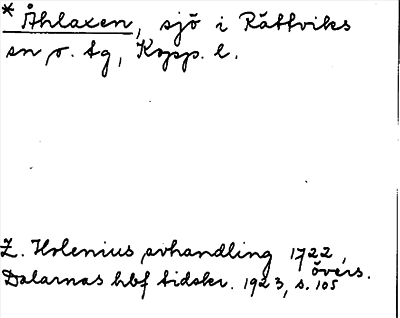 * Åhlaxen, sjö i Rättviks
sn o. tg, Kopp. l.
Z. Holenius avhandling 1722,
övers.
Dalarnas hbf tidskr. 1923, s. 105